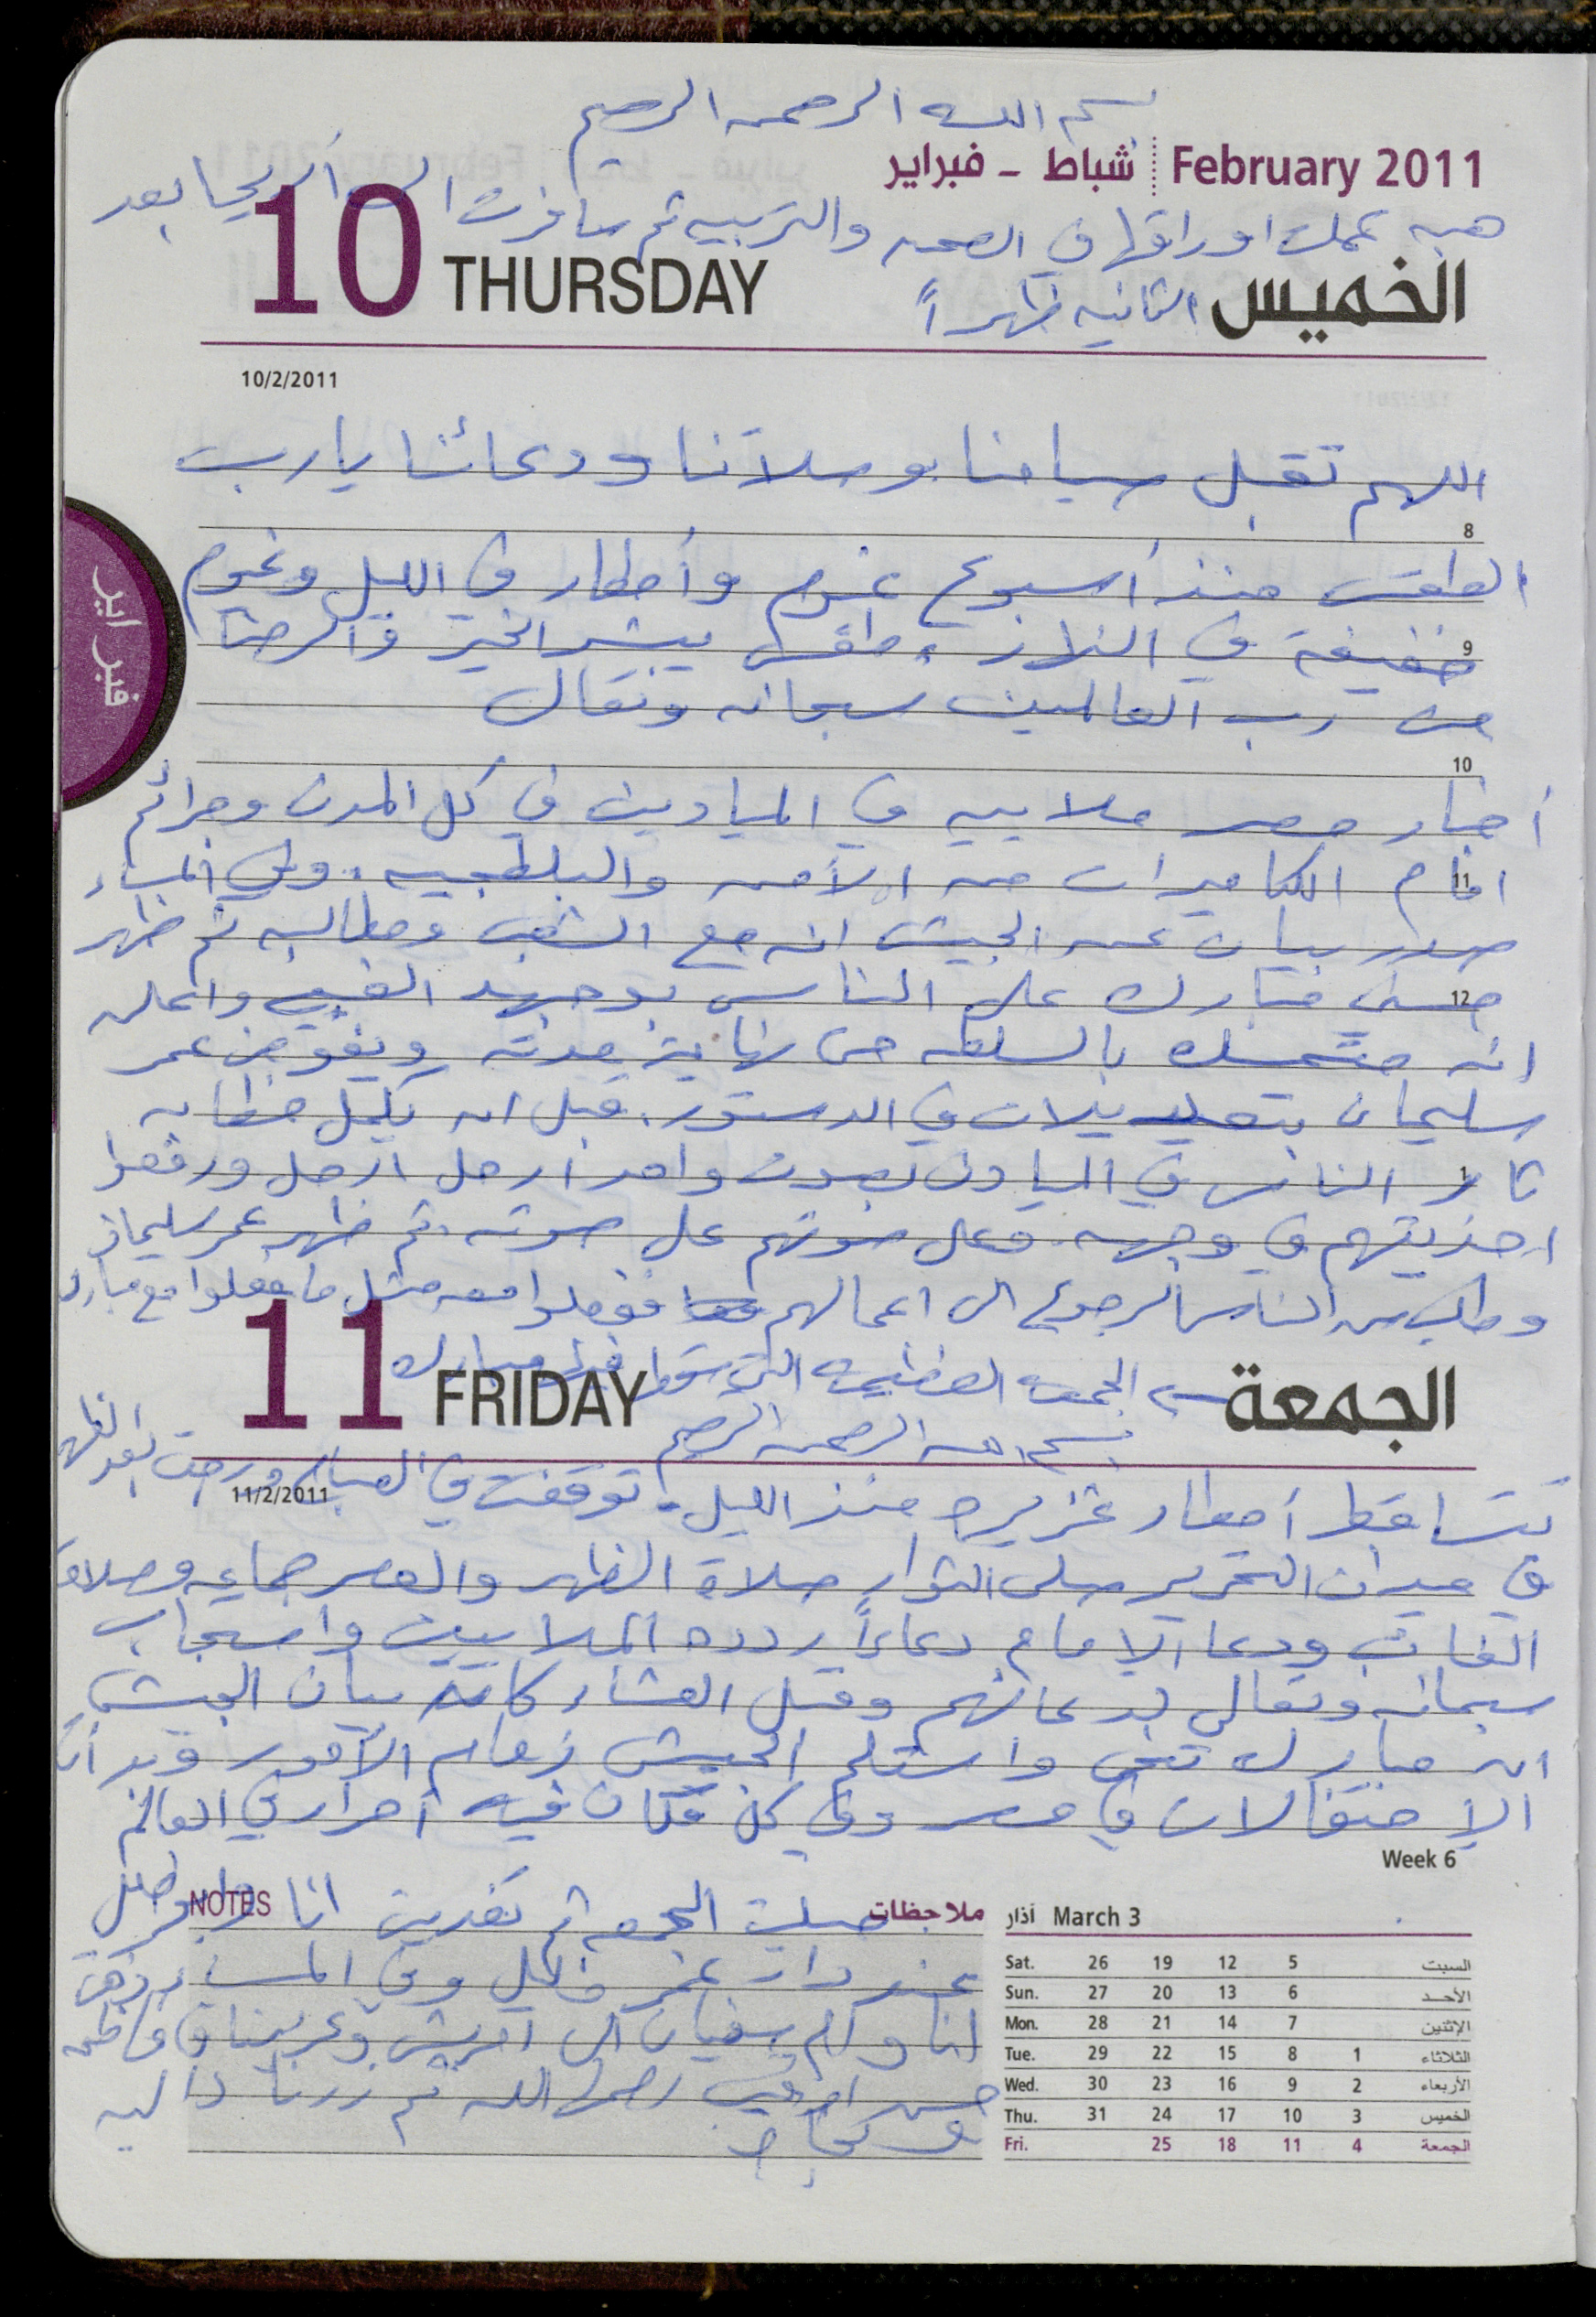 بسم الله الرحمن الرحيم
February 2011 شباط - فبراير
هبه عملت اوراقها في الصحه والتربيه ثم سافرت الى أريحا بعد
10 THURSDAY الخميس
الثانيه ظهراً
10/2/2011
اللهم تقبل صيامنا وصلاتنا ودعائنا يارب
8
الطقس منذ أسبوع غيوم وأمطار في الليل وغيوم
9
خفيفة في النهار، طقس يبشر الخير والرضا
من رب العالمين سبحانه وتعالى
10
أخبار مصر ملايين في الميادين في كل المدن وجرائم
11
امام الكاميرات من الأمن والبلطجيه. وفي المساء
صدر بيان عن الجيش انه مع الشعب ومطالبه ثم ظهر
12
حسني مبارك على الناس بوجهه القبيح واعلن
انه متمسك بالسلطه حتى نهاية مدته ويفوض عمر
سليمان بتعديلات في الدستور. قبل ان يكمل خطابه
1
ثار الناس في الميادين بصوت واحد ارحل ارحل ورفعوا
احذيتهم في وجهه. وعلى صوتهم على صوته. ثم ظهر عمر سليمان
وطلب من الناس الرجوع الى اعمالهم ففعلوا معه مثل ما فعلوا مع مبارك
11 FRIDAY الجمعة
الجمعه العظيمه التي سقط فيها مبارك
بسم الله الرحمن الرحيم
11/2/2011
تتساقط أمطار غزيره منذ الليل. توقفت في الصباح ورجعت بعد الظهر
في ميدان التحرير صلى الثوار صلاة الظهر والعصر جماعه وصلاة
الغائب ودعا الإمام دعاءاً ردده الملايين واستجاب
سبحانه وتعالى لدعائهم وقبل العشاء كان بيان الجيش
ان مبارك تنحى واستلم الجيش زمام الأمور وبدأت
الإحتفالات في مصر وفي كل مكان فيه أحرار في العالم
Week 6
ملاحظات NOTES
صليت الجمعه ثم تغديت انا
عند دار عمر فاضل وفي المساء ذهبت
انا وام سفيان الى
رحمها الله ثم زرنا داليه
آذار March 3
Sat. 26 19 12 5 السبت
Sun. 27 20 13 6 الأحد
Mon. 28 21 14 7 الإثنين
Tue. 29 22 15 8 1 الثلاثاء
Wed. 30 23 16 9 2 الأربعاء
Thu. 31 24 17 10 3 الخميس
Fri. 25 18 11 4 الجمعة
فبراير